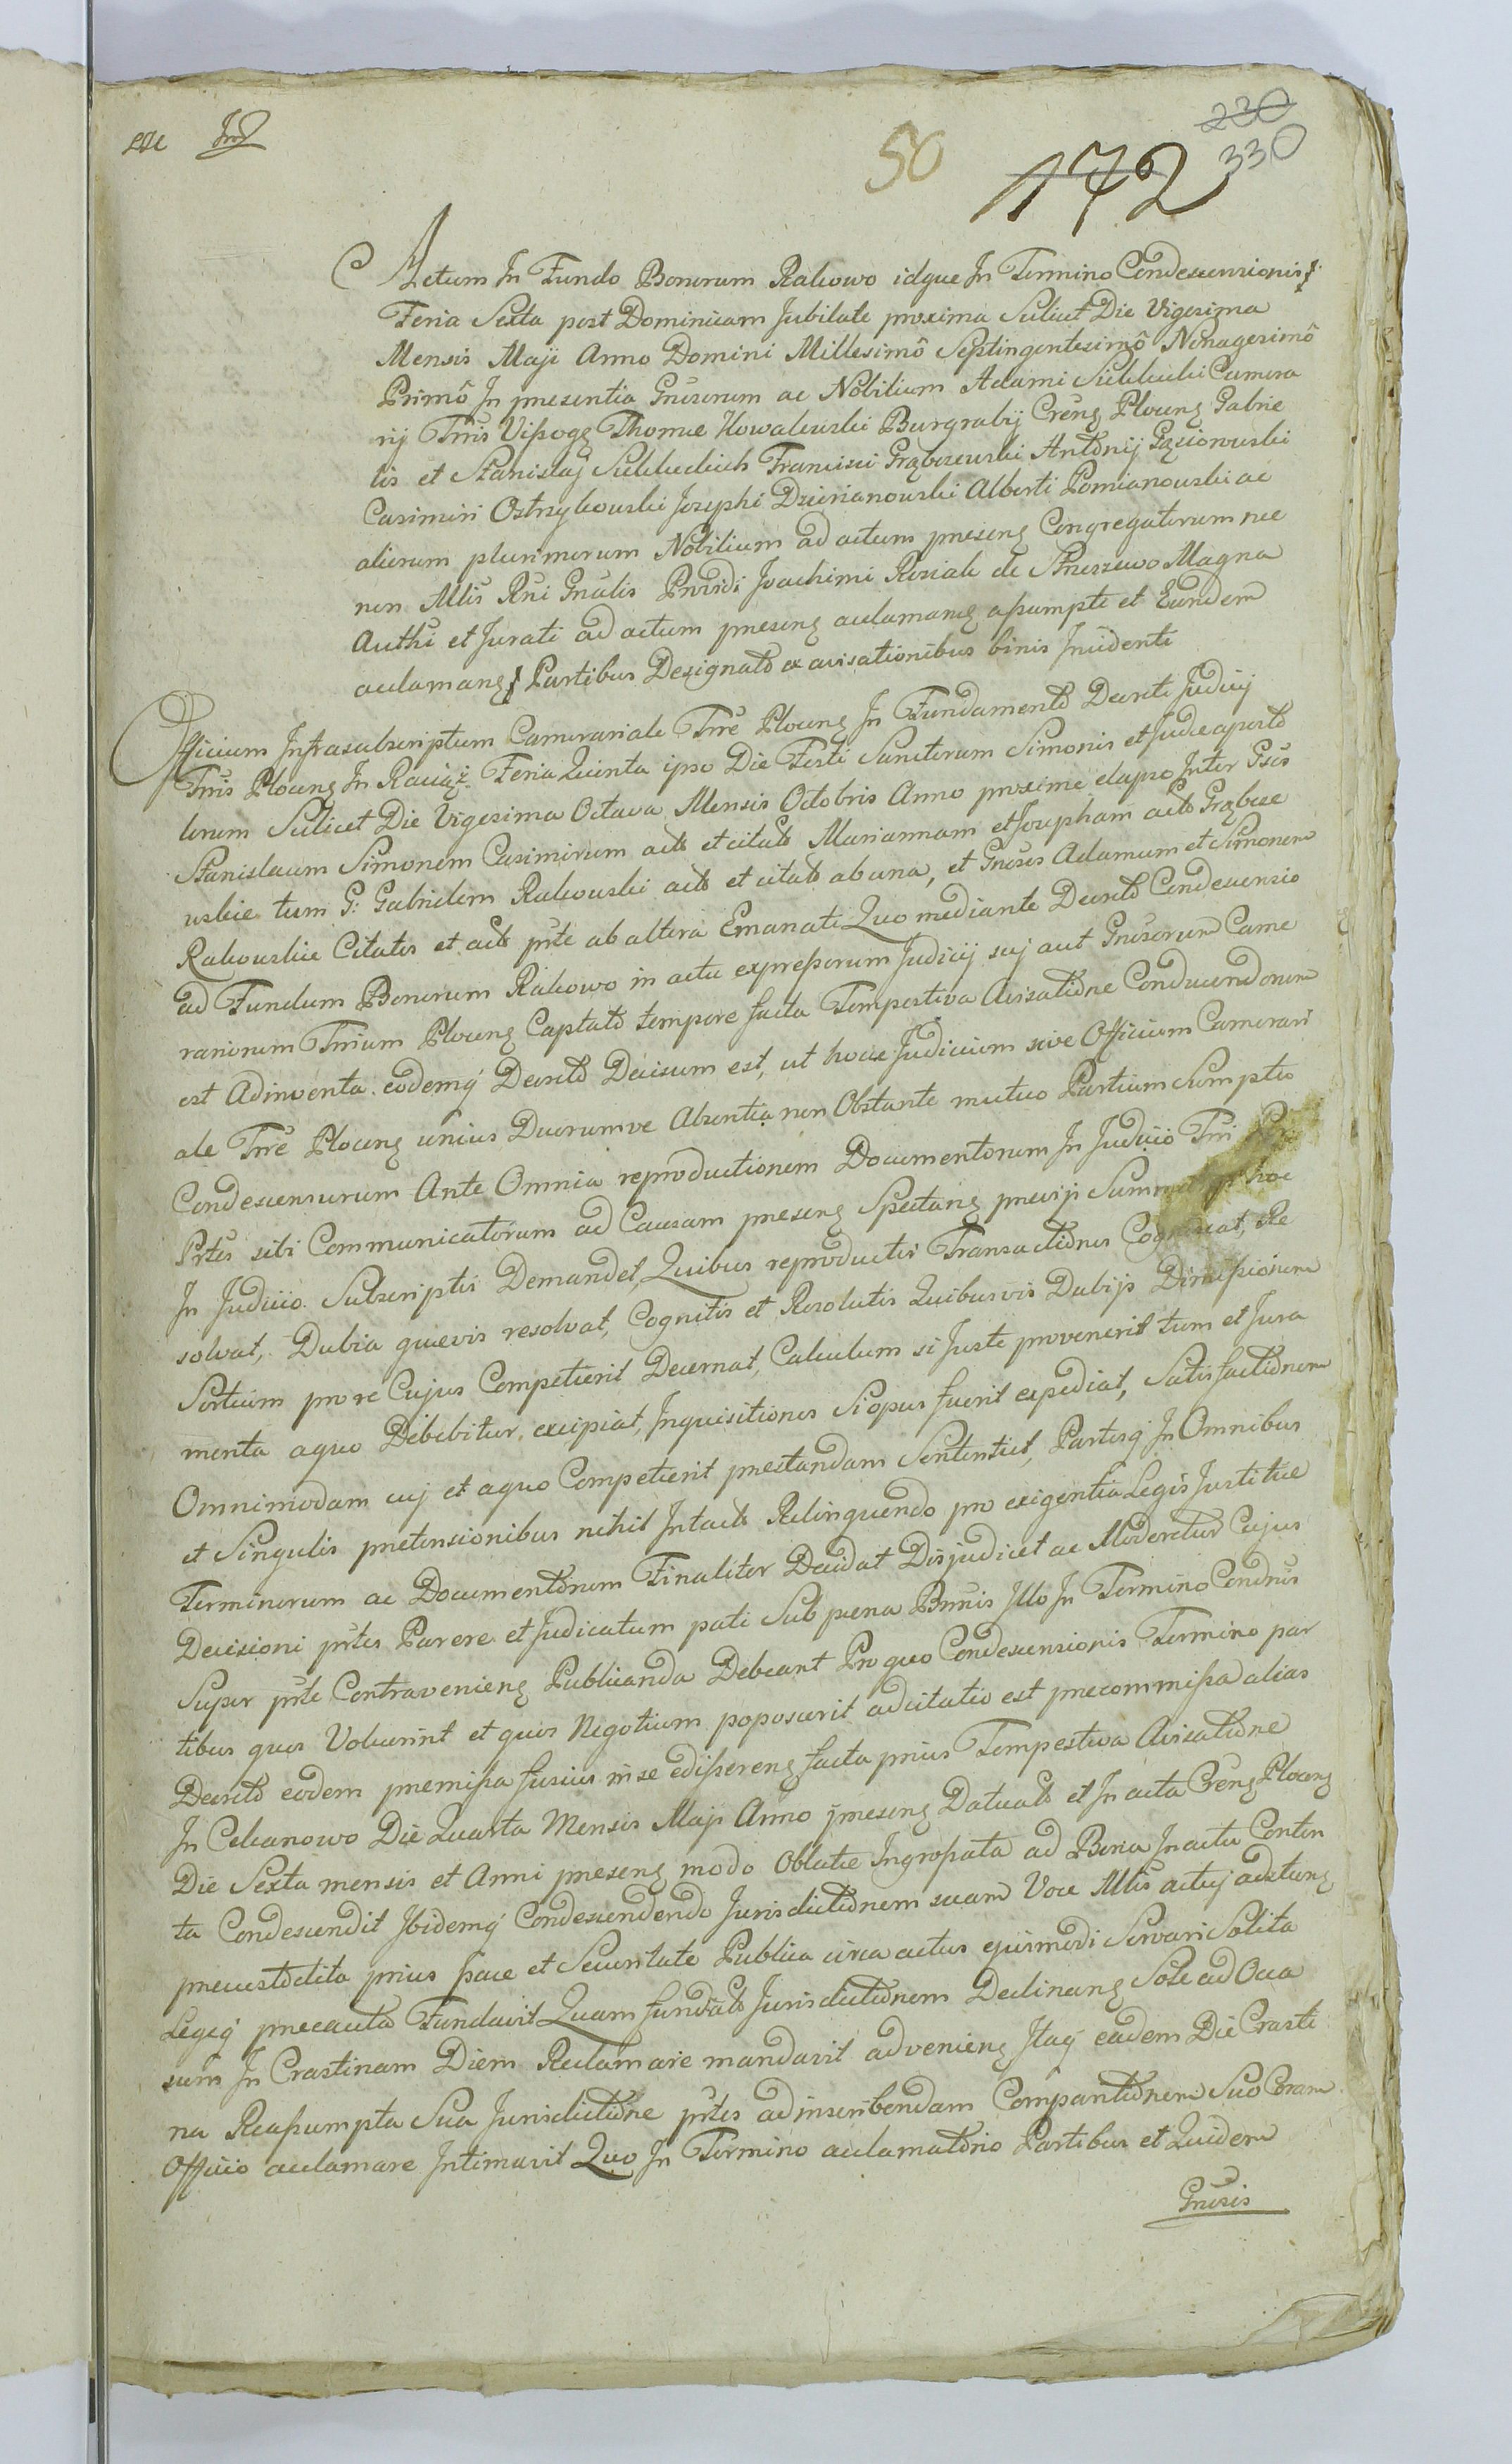 50
230
172 330
Actum In Fundo Bonorum Rakowo idque In Termino Condescensionis
Feria Sexta post Dominicam Jubilate proxima Scilicet Die Vigesima
Mensis Maji Anno Domini Millesimô Septingentesimô Nonagesimô
Primô In presentia Gnrsorum ac Nobilium Adami Sukkucki Camera
rij Trris Vißogg Thomæ Kowalewski Burgrabij Creng Ploceng Gabrie
lis et Stanislaj Francisci Grąbczewski Antonij Gąsiorowski
Casimiri Ostrzykowski Josephi Dzierzanowski Alberti Pomianowski ac
aliorum plurimorum Nobilium ad actum preseng Congregatorum nec
non Mlis Rni Gnalis Prvidi Joachimi Roziak de Srzeszewo Magna
Authi et Jurati ad actum preseng acclamang aßumpti et Eundem
acclamang Partibus Designato ex avisationibus binis Incidenti
Officium Infrasubscriptum Camerariale Trre Ploceng In Fundamento Decreti Judicij
Trris Ploceng In Raciąż Feria Quinta ipso Die Festi Sanctorum Simonis et Judæ aposto
lorum Scilicet Die Vigesima Octava Mensis Octobris Anno proxime elapso Inter Gsos
Stanislaum Simonem Casimirum acto et citato Mariannam et Josepham acto Grąbcze
wskie tum G: Gabrielem Rakowski acto et citato ab una, et Gnrsos Adamum et Simonem
Rakowskie Citatos et acto prte ab altera Emanati Quo mediante Decreto Condescensio
ad Fundum Bonorum Rakowo in actu expreßorum Judicij suj aut Gnrsorum Came
rariorum Trrium Ploceng Captato tempore facta Tempestiva Avisatione Conducendorum
est Adinventa. eodemq Decreto Decisum est, ut hocce Judicium sive Officium Camerari
ale Trre Ploceng unius Duorumve Absentia non Obstante mutuo Partium Sumptu
Condescensurum Ante Omnia reproductionem Documentorum In Judicio Trri
Prtes sibi Communicatorum ad Causam preseng Spectang previj hoc
In Judicio Subscriptis Demandet, Quibus reproductis Transactiones Cognoscat, Re
solvat, Dubia quævis resolvat, Cognitis et Resolutis Quibusvis Dubijs Dimißionem
Sortium pro re Cujus Competierit Decernat, Calculum si Juste provenerit tum et Jura
menta a quo Debebitur, excipiat, Inquisitiones Si opus fuerit expediat, Satisfactionem
Omnimodam cuj et a quo Competierit prestandam Sententiet, Partesq In Omnibus
et Singulis pretensionibus nihil Intacto Relinquendo pro exigentia Legis Justitiæ
Terminorum ac Documentorum Finaliter Decidat Disjudicet ac Moderetur Cujus
Decisioni prtes Parere et Judicatum pati Sub pœna Bnnis Illo In Termino Condnis
Super prte Contravenieng Publicanda Debeant Pro quo Condescensionis Termino par
tibus quos Voluerint et quos Negotium poposcerit adcitatio est precommißa alias
Decreto eodem premißa fusius in se edißereng facta prius Tempestiva Avisatione
In Cekanowo Die Quarta Mensis Maji Anno preseng Datuato et In acta Creng Ploceng
Die Sexta mensis et Anni preseng modo Oblatæ Ingroßata ad Bona In actu Conten
ta Condescendit Ibidemq Condescendendo Jurisdictionem suam Voce Mlis actuj adstang
precustodita prius pace et Securitate Publica circa actus ejusmodi Servari Solita
Legeq precauta Fundavit Quam fundato Jurisdictionem Declinang Sole ad Occa
sum In Crastinam Diem Reclamare mandavit advenieng Itaq eadem Die Crasti
na Reaßumpta Sua Jurisdictione prtes ad inscribendam Comparitionem Suo Coram
Officio acclamare Intimavit Quo In Termino acclamatorio Partibus et Quidem
Gnrsis